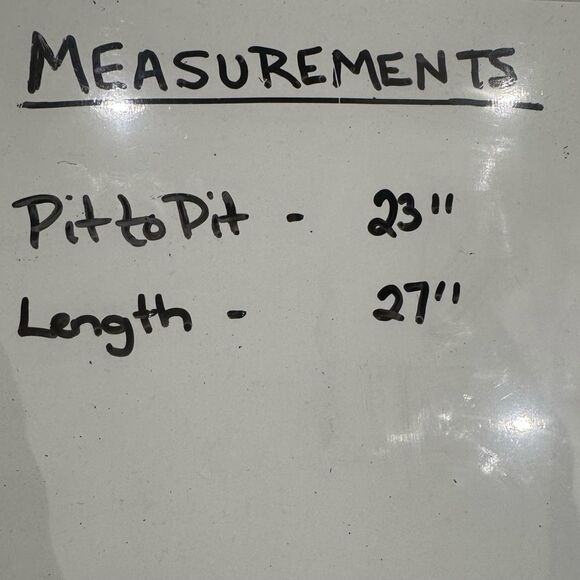 MEASUREMENTS
Pit to Pit - 23"
Length - 27"